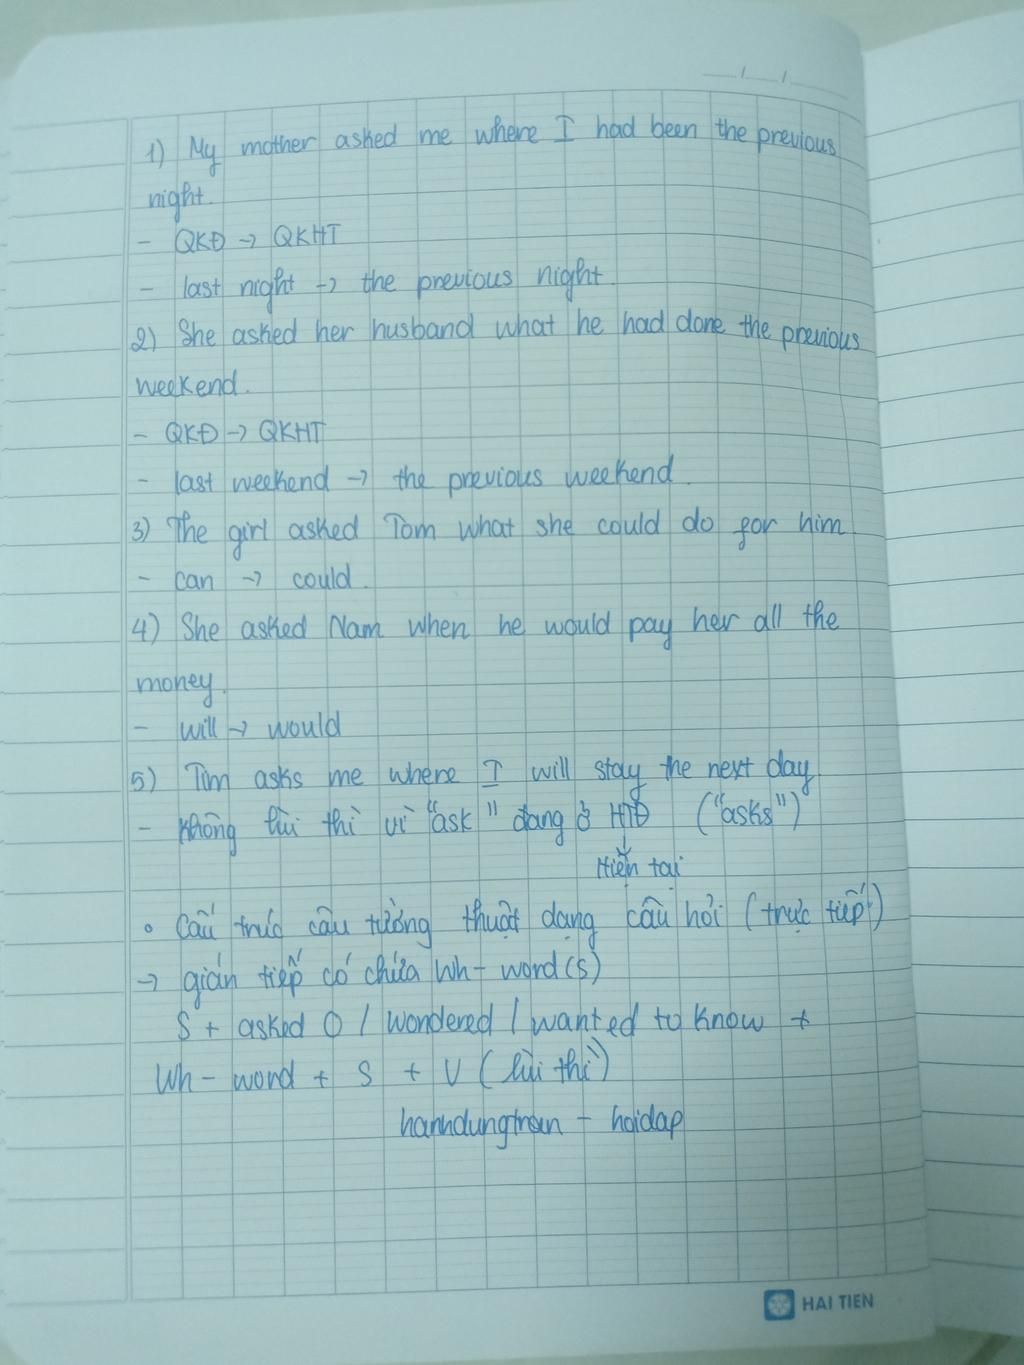 1) My mother asked me where I had been the previous
night.
- QKĐ → QKHT
- last night → the previous night.
2) She asked her husband what he had done the previous
weekend.
- QKĐ → QKHT
- last weekend → the previous weekend.
3) The girl asked Tom what she could do for him.
- can → could.
4) She asked Nam when he would pay her all the
money.
- will → would
5) Tim asks me where I will stay the next day
- Không lùi thì vì "ask" đang ở HTĐ ("asks")
↓
Hiện tại
• Cấu trúc câu tường thuật dạng câu hỏi (trực tiếp)
→ gián tiếp có chứa Wh- word(s)
S + asked O / wondered / wanted to know +
Wh- word + S + V (lùi thì)
hanhdungtran - hoidap
HAI TIEN